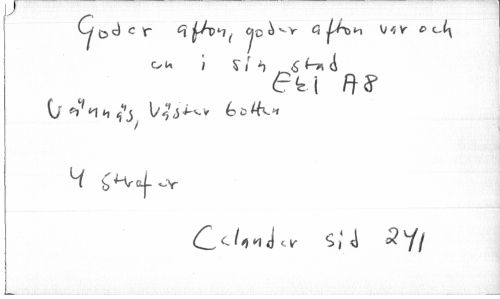 Goder afton, goder afton var och
en i sin stad
Ek1 A8
Vännäs, Västerbotten
4 strofer
Celander sid 241